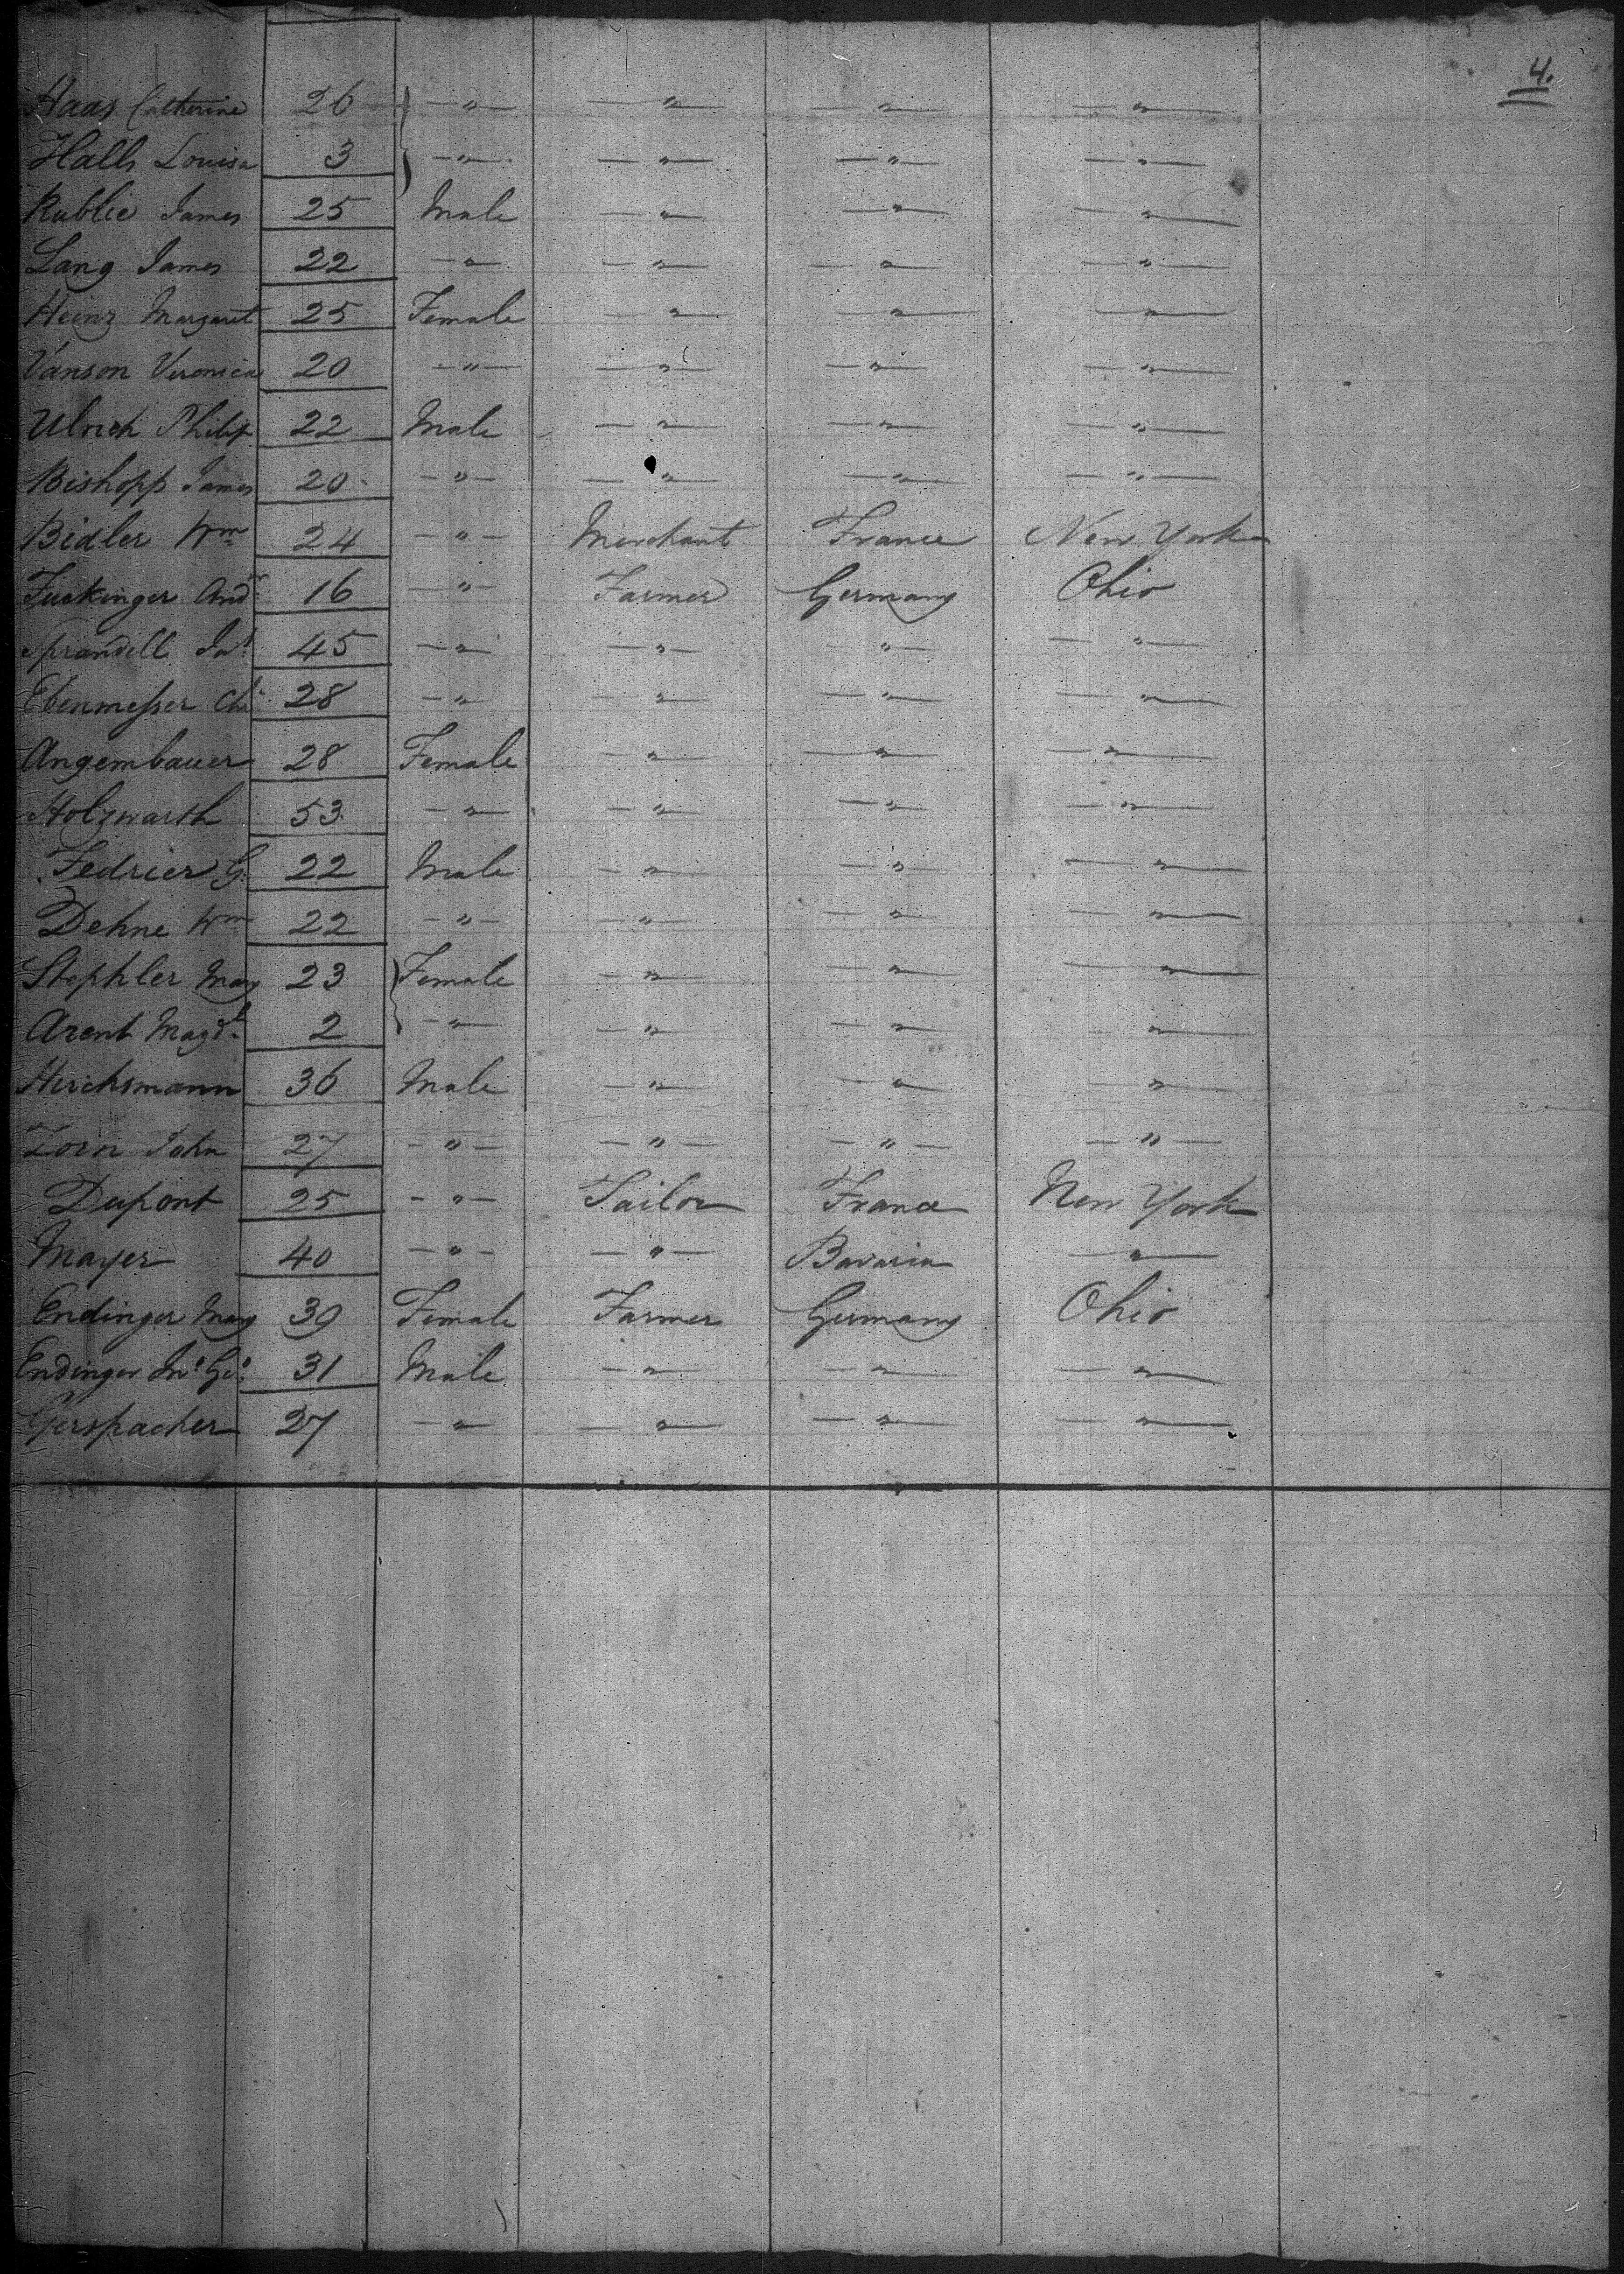 4.
Haas Catherine 26 — " — — " — — " — — " —
Halls Louisa 3 — " — — " — — " — — " —
Rublie James 25 Male — " — — " — — " —
Lang James 22 — " — — " — — " — — " —
Heinz Margaret 25 Female — " — — " — — " —
Vanson Veronica 20 — " — — " — — " — — " —
Ulrich Philip 22 Male — " — — " — — " —
Bishopp James 20 — " — — " — — " — — " —
Bidler Wm 24 — " — Merchant France New York
Fuckinger And 16 — " — Farmer Germany Ohio
Sprandell 45 — " — — " — — " — — " —
Ebenmesser Chr 28 — " — — " — — " — — " —
Angembauer 28 Female — " — — " — — " —
Holzwarth 53 — " — — " — — " — — " —
Fedrier G. 22 Male — " — — " — — " —
Dehne Wm 22 — " — — " — — " — — " —
Stephler Mary 23 Female — " — — " — — " —
Arent Magd 2 — " — — " — — " — — " —
Hirchsmann 36 Male — " — — " — — " —
Zorn John 27 — " — — " — — " — — " —
Dupont 25 — " — Tailor France New York
Mayer 40 — " — — " — Bavaria — " —
Endinger Mary 39 Female Farmer Germany Ohio
Endinger Jno Geo 31 Male — " — — " — — " —
Gerspacher 27 — " — — " — — " — — " —